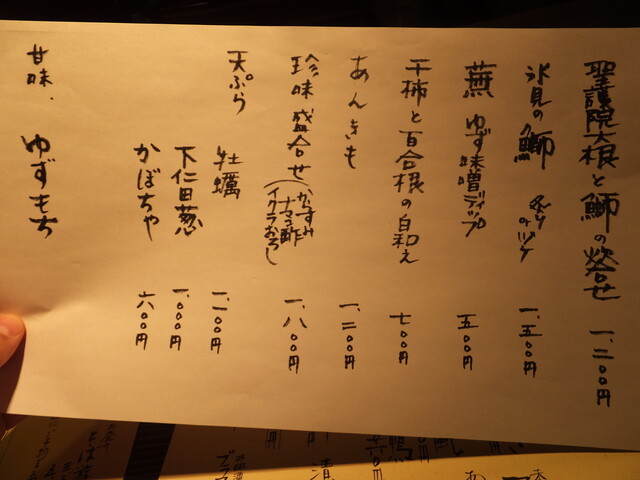 聖護院大根と鰤の焚合せ 一、二〇〇円
氷見の鰤 炙り or ヅケ 一、五〇〇円
蕪 ゆず味噌ディップ 五〇〇円
干柿と百合根の白和え 七〇〇円
あんきも 一、二〇〇円
珍味盛合せ(からすみ ナマコ酢 イクラおろし) 一、八〇〇円
天ぷら 牡蠣 一、一〇〇円
下仁田葱 一、〇〇〇円
かぼちゃ 六〇〇円
甘味、ゆずもち